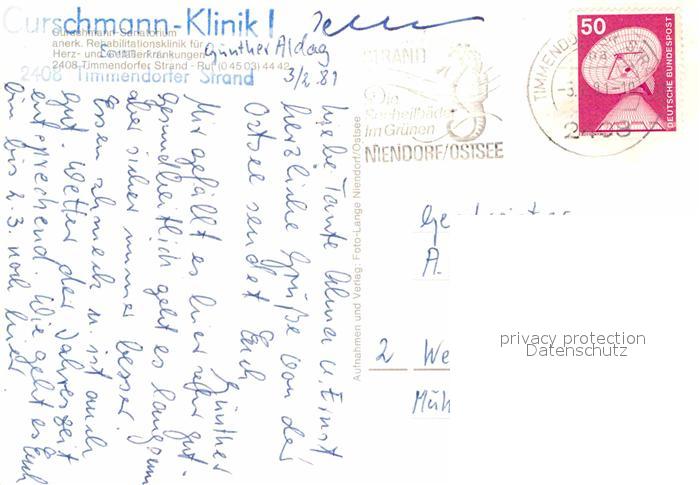 Curschmann-Klinik!
Curschmann-Sanatorium
anerk. Rehabilitationsklinik für
Herz- und Gefäßerkrankungen
2408 Timmendorfer Strand · Ruf (0 45 03) 44 42
2408 Timmendorfer Strand
Günther Aldag
3/2.81
Liebe Tante Alma u. Ernst
herzliche Grüße von der
Ostsee sendet Euch
Günther
Mir gefällt es hier sehr gut.
gesundheitlich geht es langsam
aber sicher immer besser.
Essen schmeckt u. ist auch
gut. Wetter der Jahreszeit
entsprechend. Wie geht es Euch
bin bis 2.3. noch hier
Aufnahmen und Verlag: Foto-Lange Niendorf/Ostsee
STRAND
Die
Seeheilbäder
Im Grünen
NIENDORF/OSTSEE
TIMMENDO
2408
50
DEUTSCHE BUNDESPOST
A.
2 We
Müh
privacy protection
Datenschutz